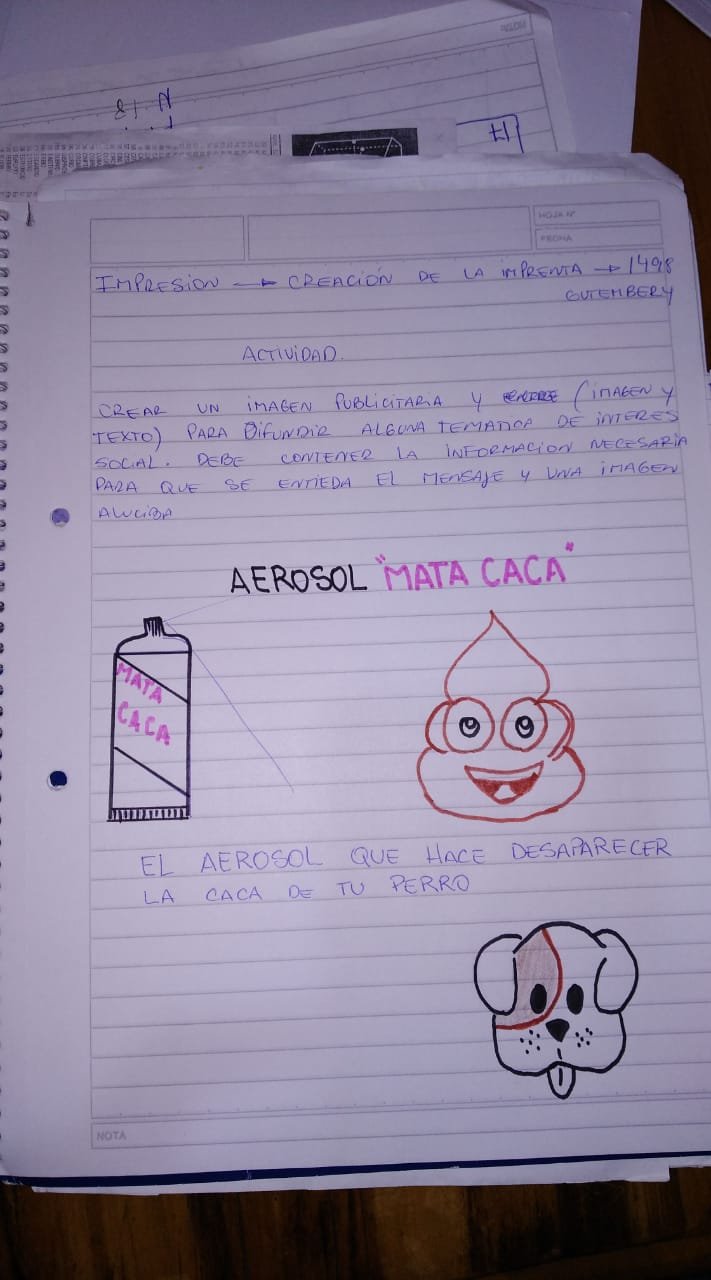 N 18
HOJA N°
FECHA
IMPRESION → CREACIÓN DE LA IMPRENTA → 1498
GUTEMBERY
ACTIVIDAD.
CREAR UN IMAGEN PUBLICITARIA Y (IMAGEN Y
TEXTO) PARA DIFUNDIR ALGUNA TEMATICA DE INTERES
SOCIAL. DEBE CONTENER LA INFORMACION NECESARIA
PARA QUE SE ENTIEDA EL MENSAJE Y UNA IMAGEN
ALUCIBA
AEROSOL "MATA CACA"
MATA
CACA
EL AEROSOL QUE HACE DESAPARECER
LA CACA DE TU PERRO
NOTA